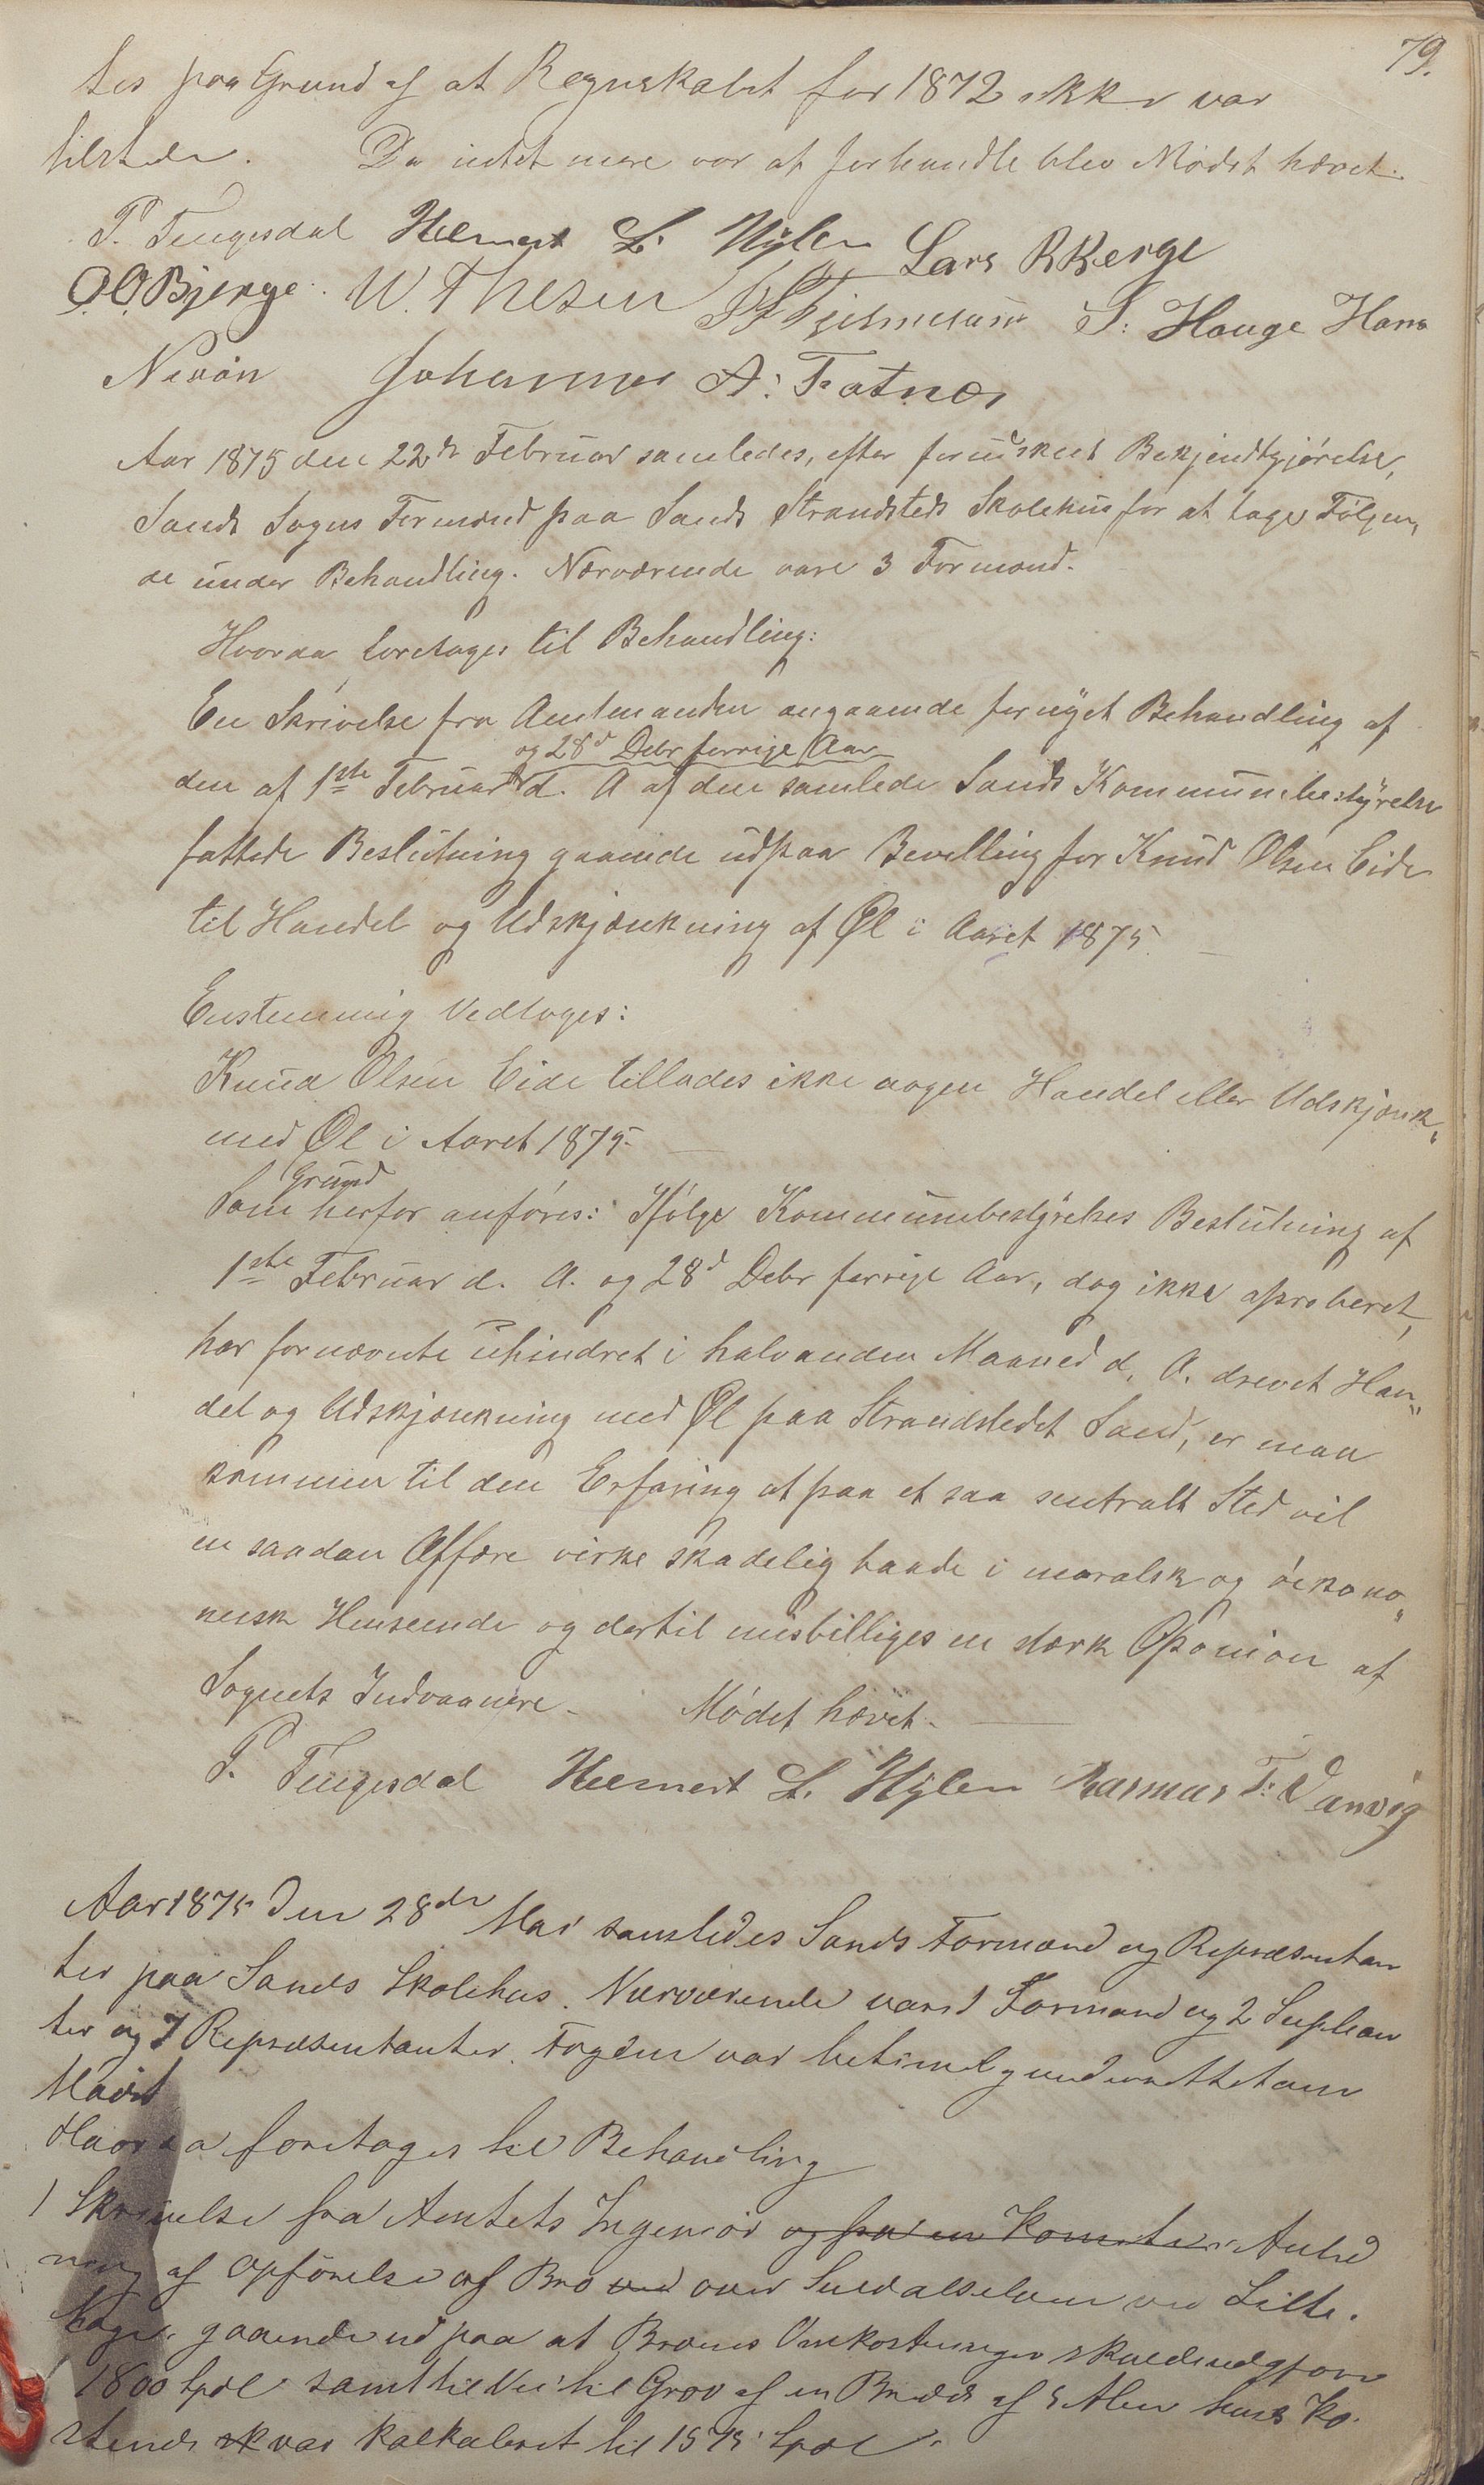 79.
tes paa Grund af at Regnskabet for 1872 ikke var
tilstede. Da intet mere var at forhandle blev Mødet hævet.
P. Tengesdal Helmert L. Hylen Lars R Berge
O. O. Bjerge. W. Thesen S. Hauge Hans
Nevøn Johannes A. Fatnes
Aar 1875 den 22de Februar samledes, efter forudskeet Bekjendtgjørelse,
Sands Sogns Formænd paa Sands Strandsteds Skolehus for at tage Følgen„
de under Behandling. Nærværende vare 3 Formænd.
Hvoraa foretages til Behandling:
En Skrivelse fra Amtmanden angaaende fornyet Behandling af
og 28d Debr forrige Aar
den af 1ste Februar d. A af den samlede Sands Kommunebestyrelse
fattede Beslutning gaaende udpaa Bevilling for Knud Olsen Eide
til Handel og Udskjænkning af Øl i Aaret 1875.
Enstemmig Vedtoges:
Knud Olsen Eide tillades ikke nogen Handel eller Udskjænk„
med Øl i Aaret 1875.
Grund
Som herfor anføres: Ifølge Kommunebestyrelses Beslutning af
1ste Februar d. A. og 28d Debr forrige Aar, dog ikke aproberet,
har fornævnte uhindret i halvanden Maaned d. A. drevet Han„
del og Udskjænkning med Øl paa Strandstedet Sand, er man
kommen til den Erfaring at paa et saa sentralt Sted vil
en saadan Affære virke skadelig baade i moralsk og øekono„
misk Henseende og dertil misbilliges en stærk Oponion af
Sognets Indvaanere. Mødet hævet.
P. Tengesdal Helmert L. Hylen Rasmus T. Vanvig
Aar 1875 den 28de Mai samledes Sands Formænd og Repræsentan
ter paa Sands Skolehus. Nærværende vare 1 Formænd og 2 Suplean
ter og 7 Repræsentanter. Fogden var betimelg underrettet om
Mødet
Hvoraa foretages til Behandling
1 Skrivelse fra Amtets Ingeniør og fra en Komite i Anled
ning af Opførelse af Bro ved over Suldalselven ved Lille.
gaaende ud paa at Broens Omkostninger skulde udgjøre
1800 Spdl samt til Vei til Grov af en Bredde af 5 Alen hvis Ko.
stende sk var kalkuleret til 1575 Spdl.